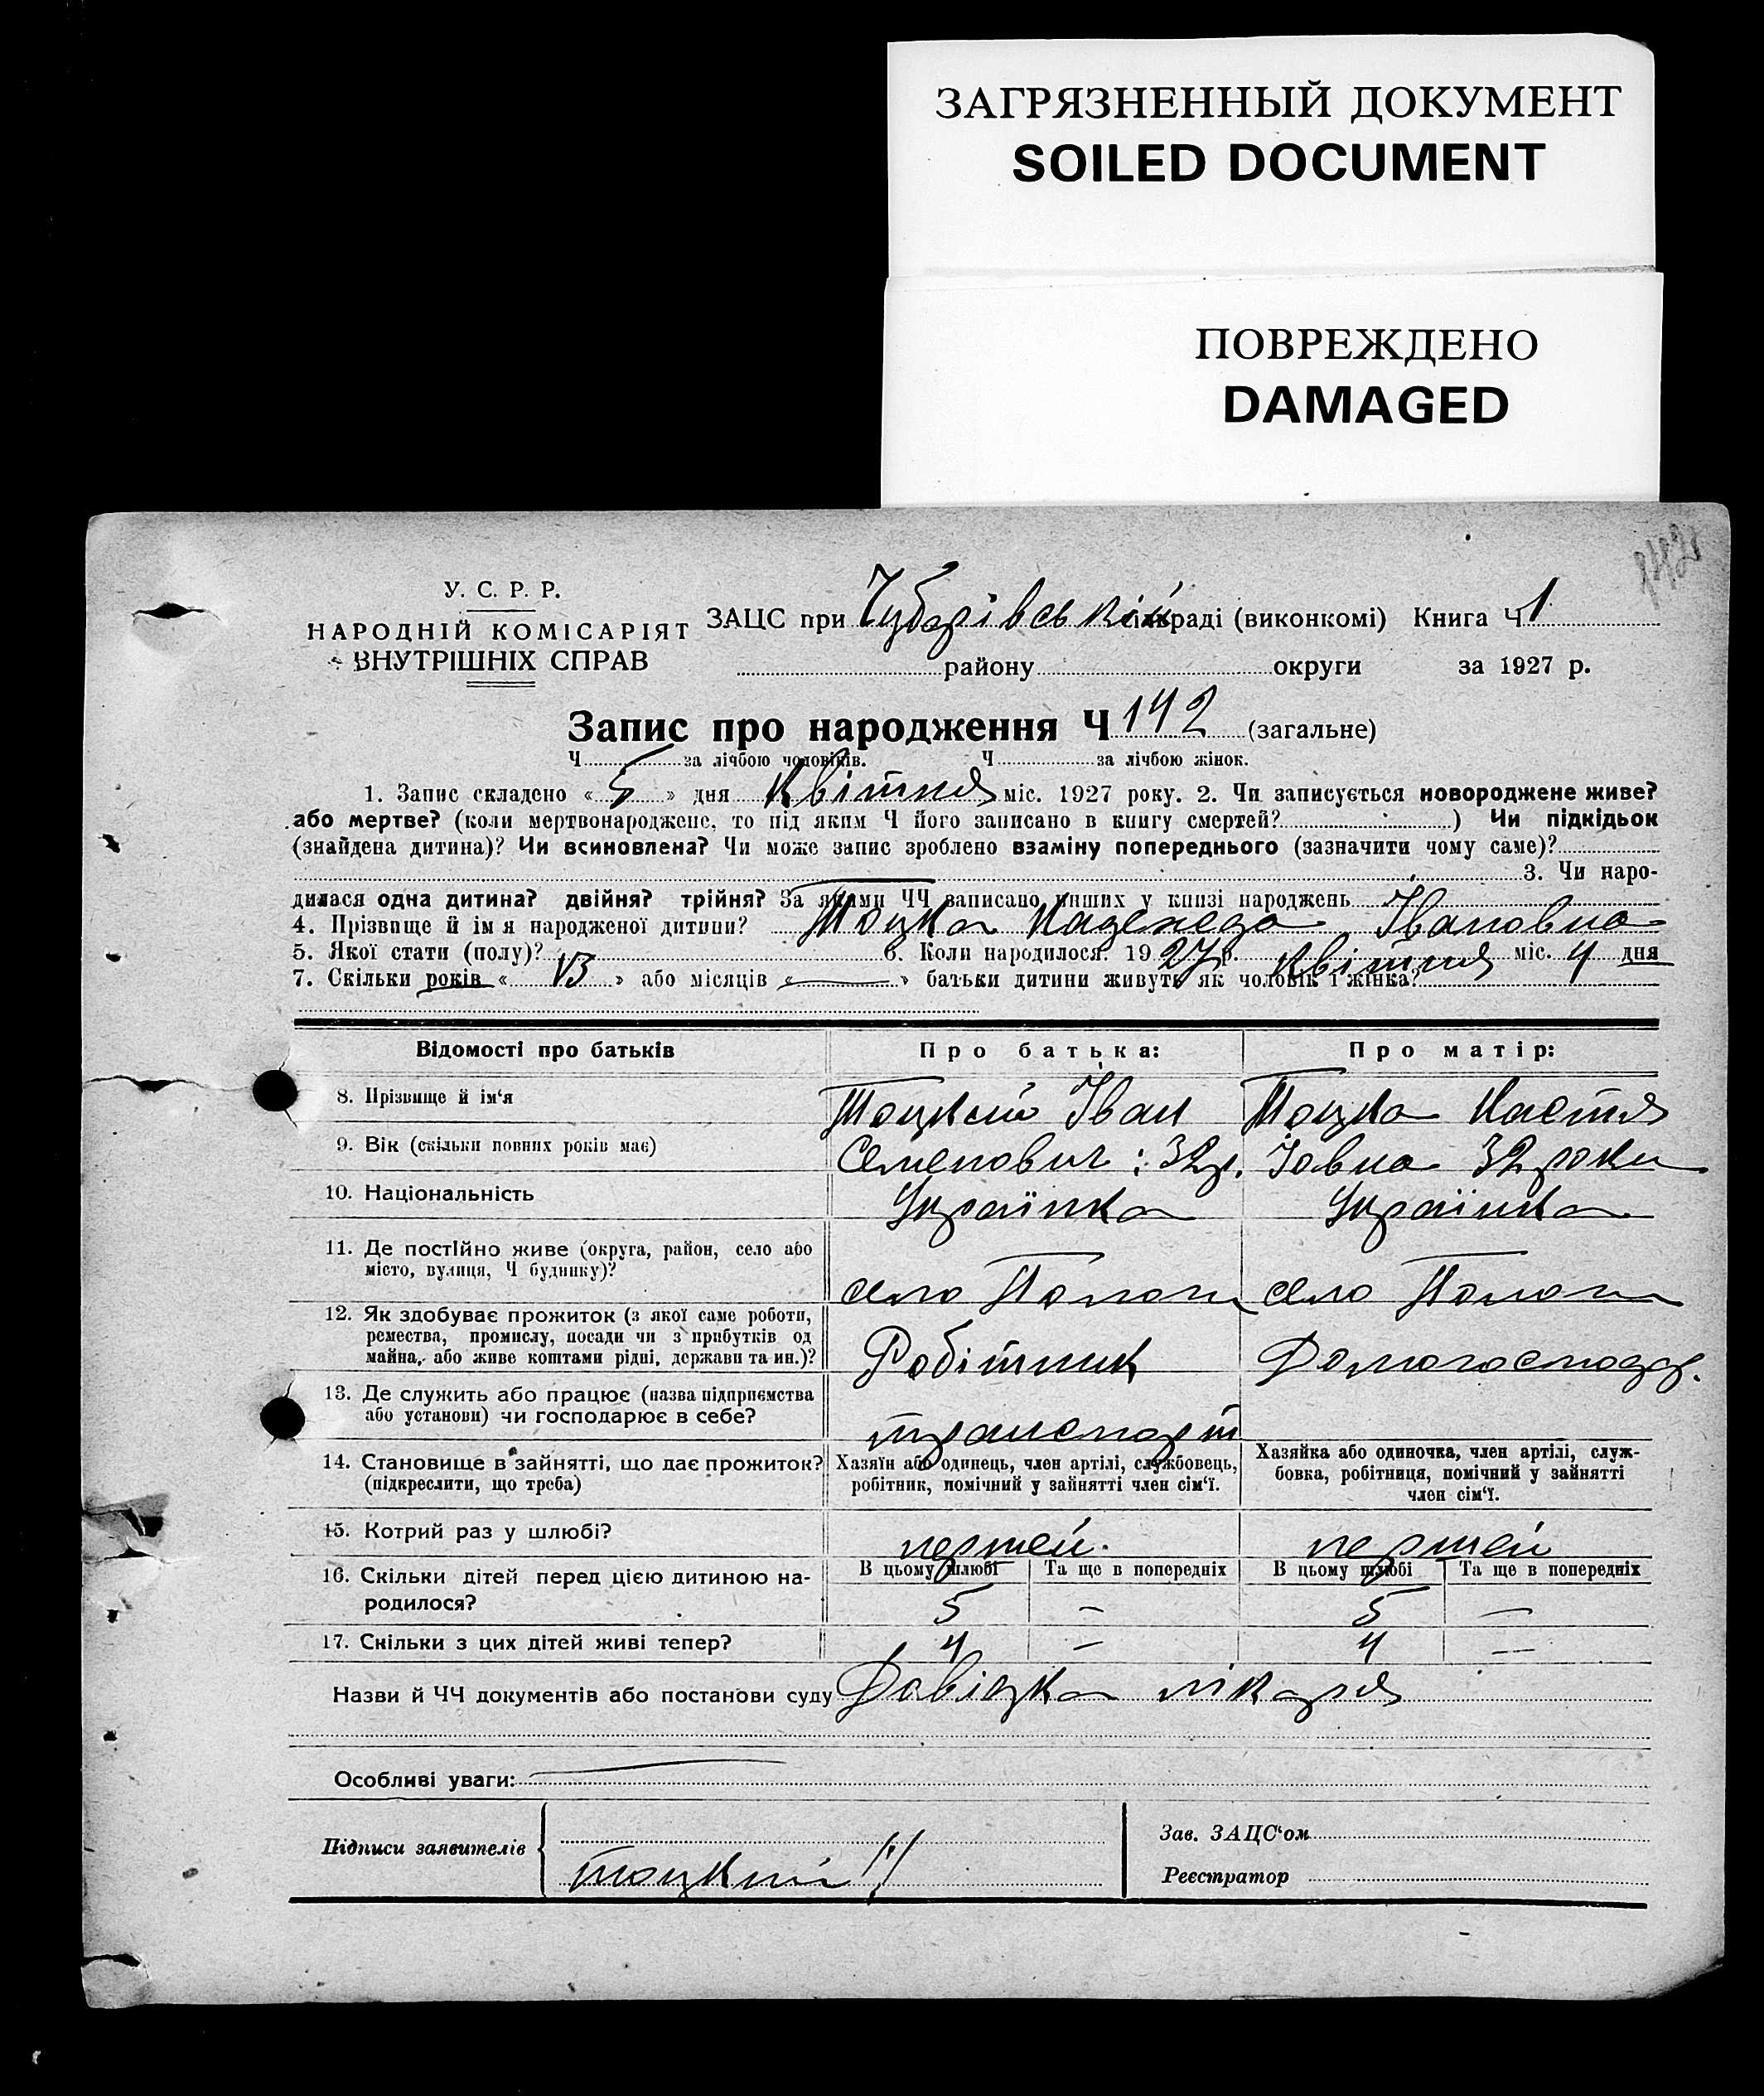 ЗАГРЯЗНЕННЫЙ ДОКУМЕНТ
SOILED DOCUMENT
ПОВРЕЖДЕНО
DAMAGED
У. С. Р. Р.
НАРОДНІЙ КОМІСАРІЯТ
ВНУТРІШНІХ СПРАВ
ЗАЦС при Чубарівській раді (виконкомі) Книга Ч 1
району округи за 1927 р.
Запис про народження Ч 142 (загальне)
Ч за лічбою чоловіків. Ч за лічбою жінок.
1. Запис складено « 5 » дня Квітня міс. 1927 року. 2. Чи записується новороджене живе?
або мертве? (коли мертвонароджене, то під яким Ч його записано в книгу смертей? ) Чи підкідьок
(знайдена дитина)? Чи всиновлена? Чи може запис зроблено взаміну попереднього (зазначити чому саме)?
3. Чи наро-
дилася одна дитина? двійня? трійня? За якими ЧЧ записано инших у книзі народжень
4. Прізвище й ім я народженої дитини? Тоцка Надежда Івановна
5. Якої стати (полу)? 6. Коли народилося: 1927 р. Квітня міс. 4 дня
7. Скільки років « 13 » або місяців « — » батьки дитини живуть як чоловік і жінка?
Відомості про батьків Про батька: Про матір:
8. Прізвище й ім‘я Тоцкий Іван Тоцка Настя
9. Вік (скільки повних років має) Семенович : 32 р. Іовна 32 роки
10. Національність Українка Українка
11. Де постійно живе (округа, район, село або
місто, вулиця, Ч будинку)? село Пологи село Пологи
12. Як здобуває прожиток (з якої саме роботи,
ремества, промислу, посади чи з прибутків од
майна, або живе коштами рідні, держави та ин.)? Робітник Домогосподр.
13. Де служить або працює (назва підприємства
або установи) чи господарює в себе? транспорт
14. Становище в зайнятті, що дає прожиток?
(підкреслити, що треба)
Хазяїн або одинець, член артілі, службовець,
робітник, помічний у зайнятті член сім‘ї.
Хазяйка або одиночка, член артілі, служ-
бовка, робітниця, помічний у зайнятті
член сім‘ї.
15. Котрий раз у шлюбі? першей. першей
16. Скільки дітей перед цією дитиною на-
родилося?
В цьому шлюбі Та ще в попередніх В цьому шлюбі Та ще в попередніх
5 — 5 —
17. Скільки з цих дітей живі тепер? 4 — 4 —
Назви й ЧЧ документів або постанови суду Довідка лікаря
Особливі уваги:
Підписи заявителів
Тоцкий
Зав. ЗАЦС‘ом
Реєстратор